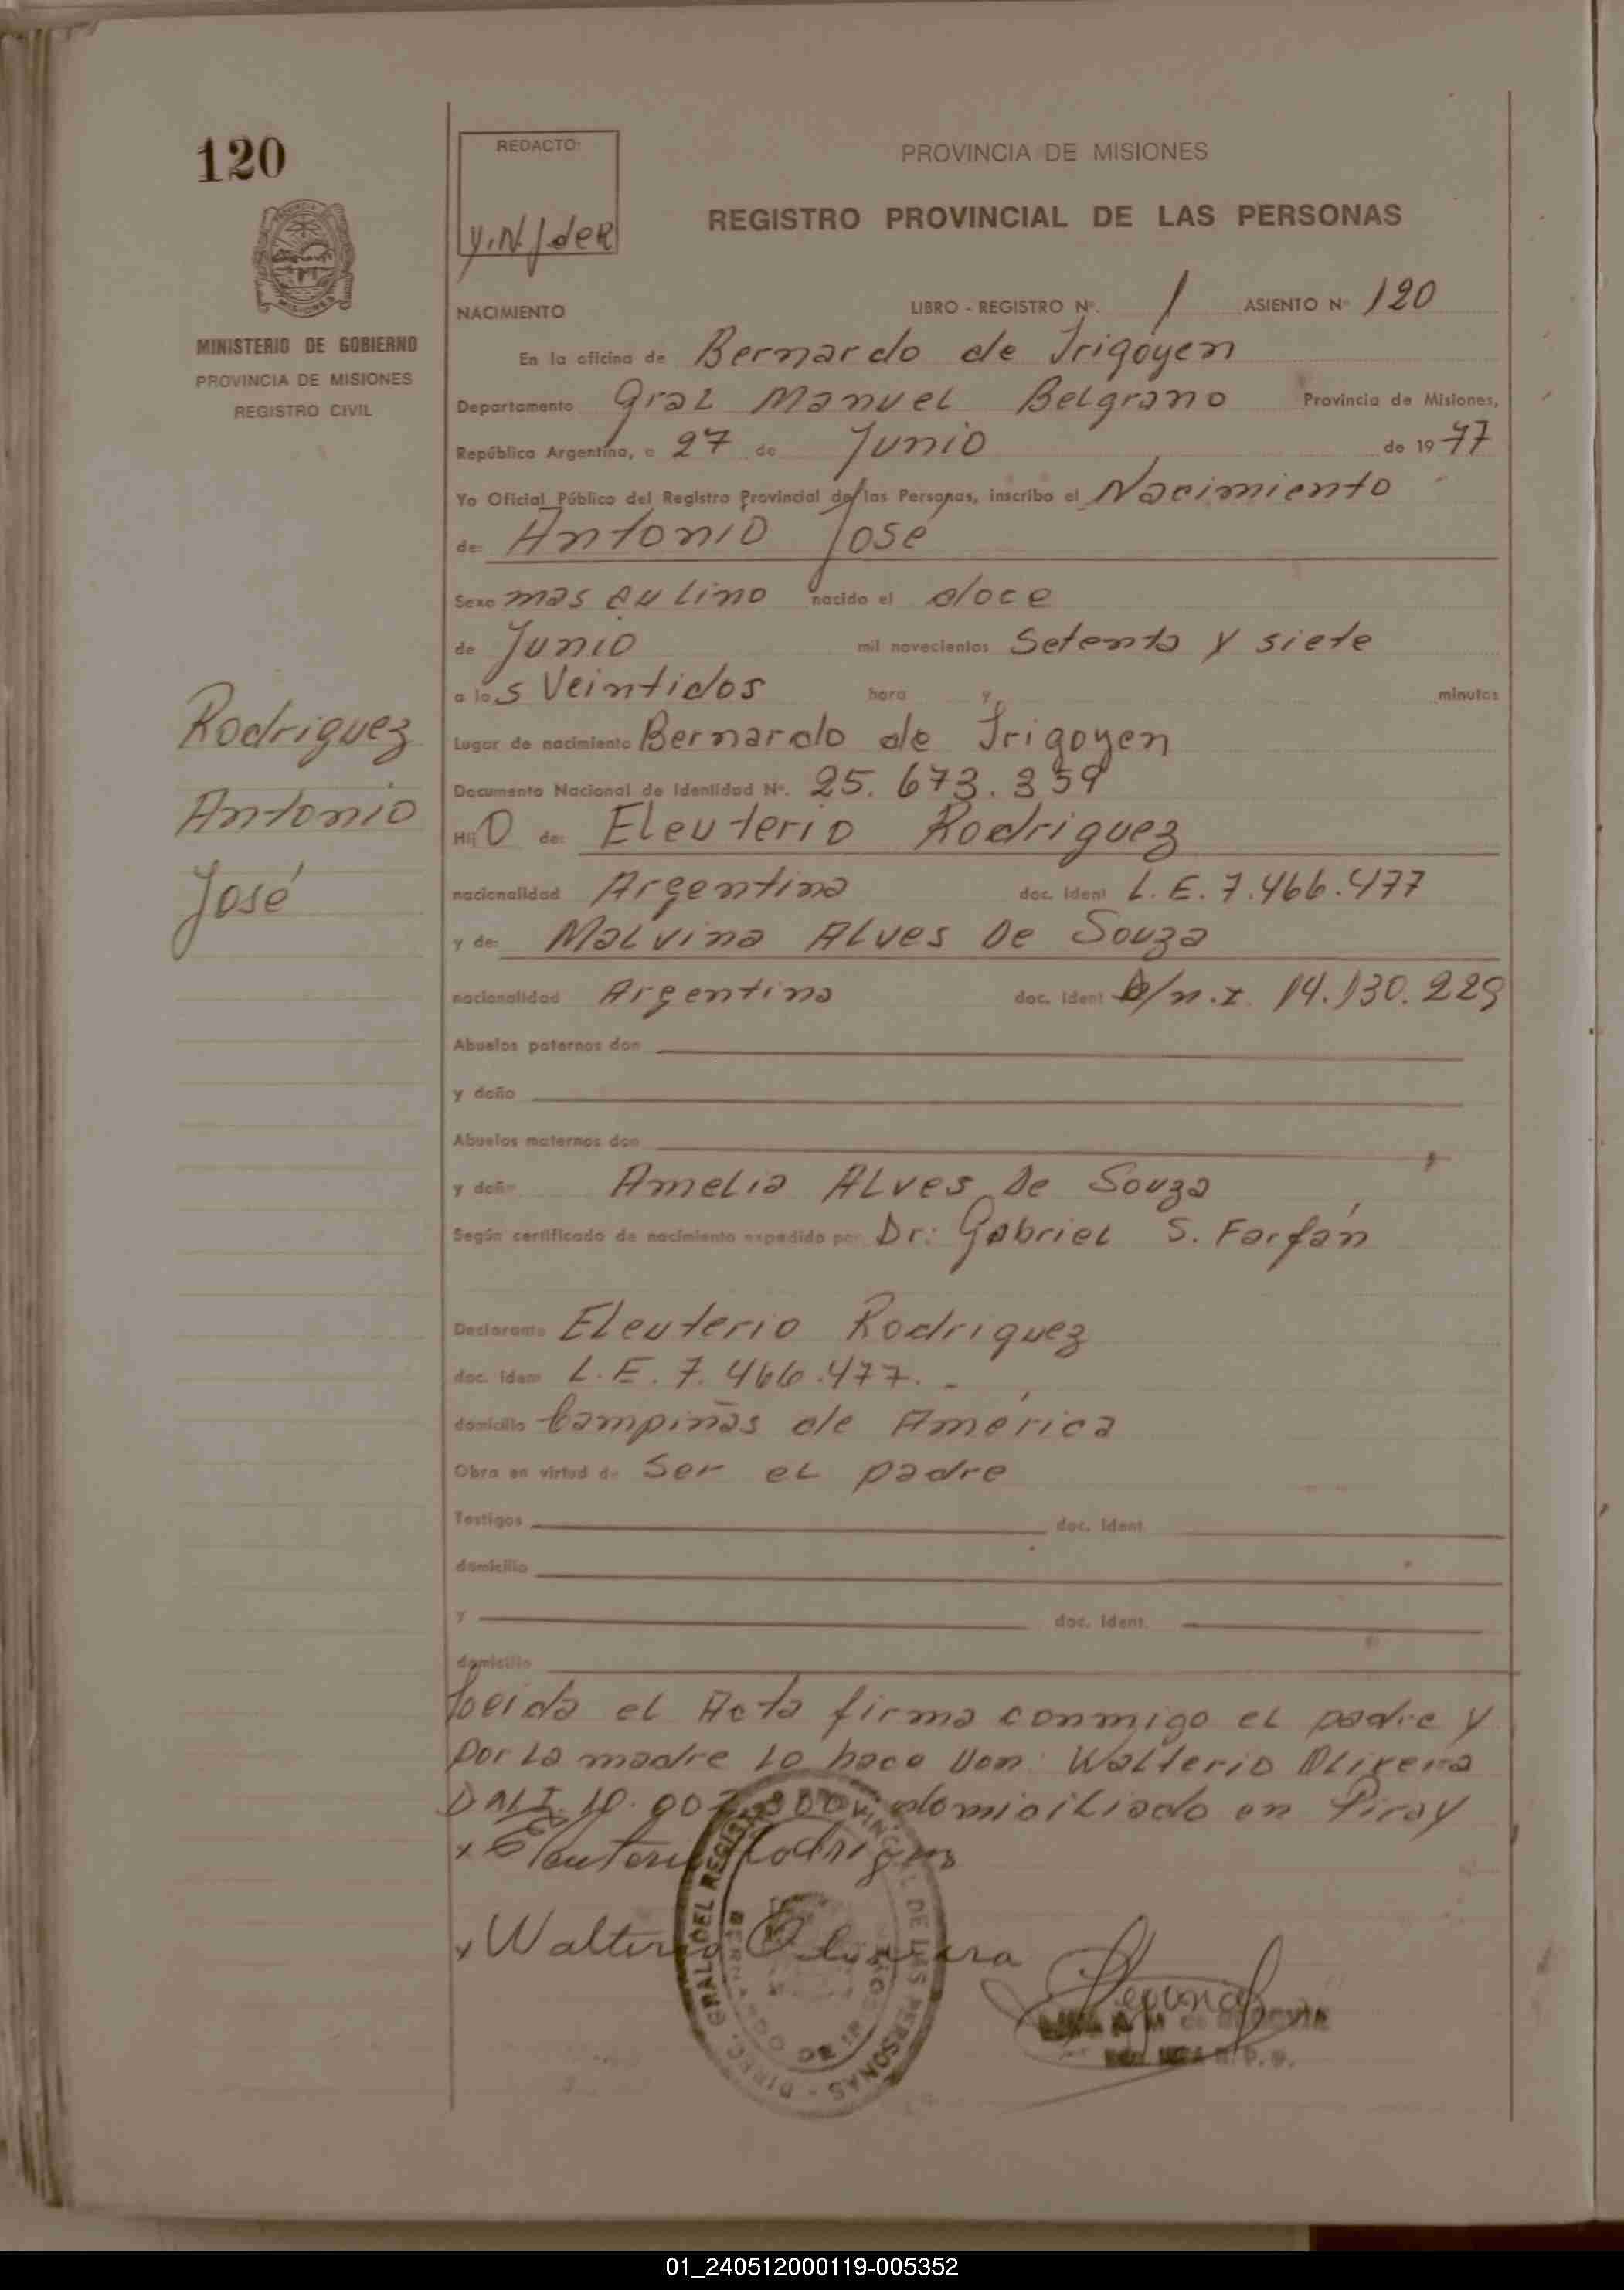 120
REDACTO:
Y.N/deR
PROVINCIA DE MISIONES
REGISTRO PROVINCIAL DE LAS PERSONAS
MINISTERIO DE GOBIERNO
PROVINCIA DE MISIONES
REGISTRO CIVIL
NACIMIENTO LIBRO - REGISTRO Nº. 1 ASIENTO Nº 120
En la oficina de Bernardo de Irigoyen
Departamento Gral Manuel Belgrano Provincia de Misiones,
República Argentina, a 27 de Junio de 1977
Yo Oficial Público del Registro Provincial de las Personas, inscribo el Nacimiento
de: Antonio José
Sexo masculino nacido el doce
de Junio mil novecientos Setenta y siete
a las Veintidos hora y minutos
Rodriguez
Antonio
José
Lugar de nacimiento Bernardo de Irigoyen
Documento Nacional de Identidad Nº. 25.673.359
Hijo de: Eleuterio Rodriguez
nacionalidad Argentina doc. Ident L.E. 7.466.477
y de: Malvina Alves De Souza
nacionalidad Argentina doc. Ident D/n.I. 14.130.229
Abuelos paternos don
y doña
Abuelos maternos don
y doña Amelia Alves De Souza
Según certificado de nacimiento expedido por Dr: Gabriel S. Farfán
Declarante Eleuterio Rodriguez
doc. Ident L.E. 7.466.477.-
domicilio Campiñas de América
Obra en virtud de Ser el padre
Testigos doc. Ident
domicilio
y doc. Ident.
domicilio
Leida el Acta firma conmigo el padre y
por la madre lo hace Don: Walterio Olivera
DNI domiciliado en Piray
x Eleuterio Rodrigues
x Walterio Olivera
DIREC. GRAL. DEL REGISTRO PROVINCIAL DE LAS PERSONAS -
BERNARDO DE IRIGOYEN
01_240512000119-005352